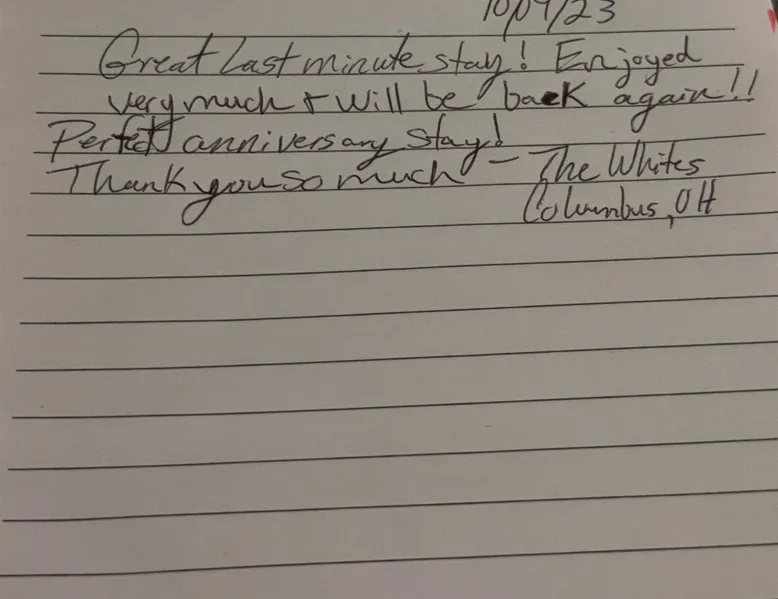 10/09/23
Great last minute stay! Enjoyed
very much + will be back again!!
Perfect anniversary stay!
Thank you so much – The Whites
Columbus, OH